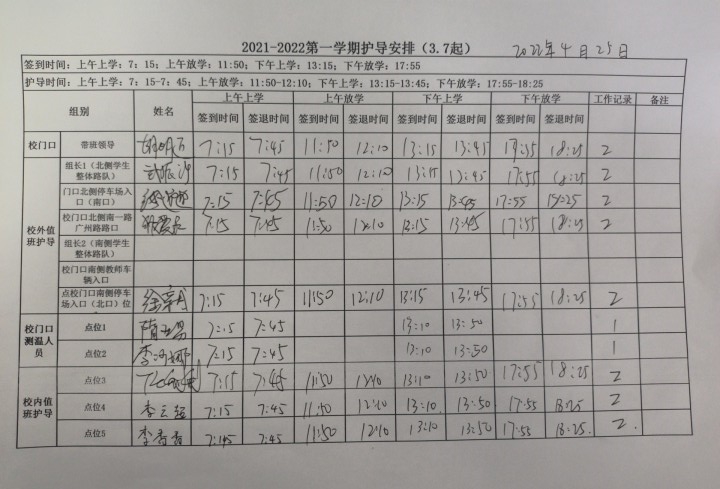 2021-2022第一学期护导安排（3.7起） 2022年4月25日
签到时间：上午上学：7：15；上午放学：11:50；下午上学：13:15；下午放学：17:55
护导时间：上午上学：7：15-7：45；上午放学：11:50-12:10；下午上学：13:15-13:45；下午放学：17:55-18:25
组别 姓名 上午上学 上午放学 下午上学 下午放学 工作记录 备注
签到时间 签退时间 签到时间 签退时间 签到时间 签退时间 签到时间 签退时间
校门口 带班领导 7:15 7:45 11:50 12:10 13:15 13:45 18:25 2
校外值班护导
组长1（北侧学生整体路队） 7:15 7:45 11:50 12:10 13:15 13:45 17:55 18:25 2
门口北侧停车场入口（南口） 7:15 11:50 12:10 13:15 13:45 17:55 2
校门口北侧南一路广州路路口 7:15 7:45 11:50 12:10 13:15 13:45 17:55 18:25 2
组长2（南侧学生整体路队）
校门口南侧教师车辆入口
点校门口南侧停车场入口（北口）位 7:15 7:45 11:50 12:10 13:15 13:45 17:55 18:25 2
校门口测温人员
点位1 7:15 7:45 13:10 13:50 1
点位2 7:15 7:45 13:10 13:50 1
校内值班护导
点位3 7:15 7:45 11:50 12:10 13:10 13:50 17:55 18:25 2
点位4 7:15 7:45 11:50 12:10 13:10 13:50 17:55 18:25 2
点位5 李春香 7:45 11:50 12:10 13:10 13:50 17:55 18:25 2